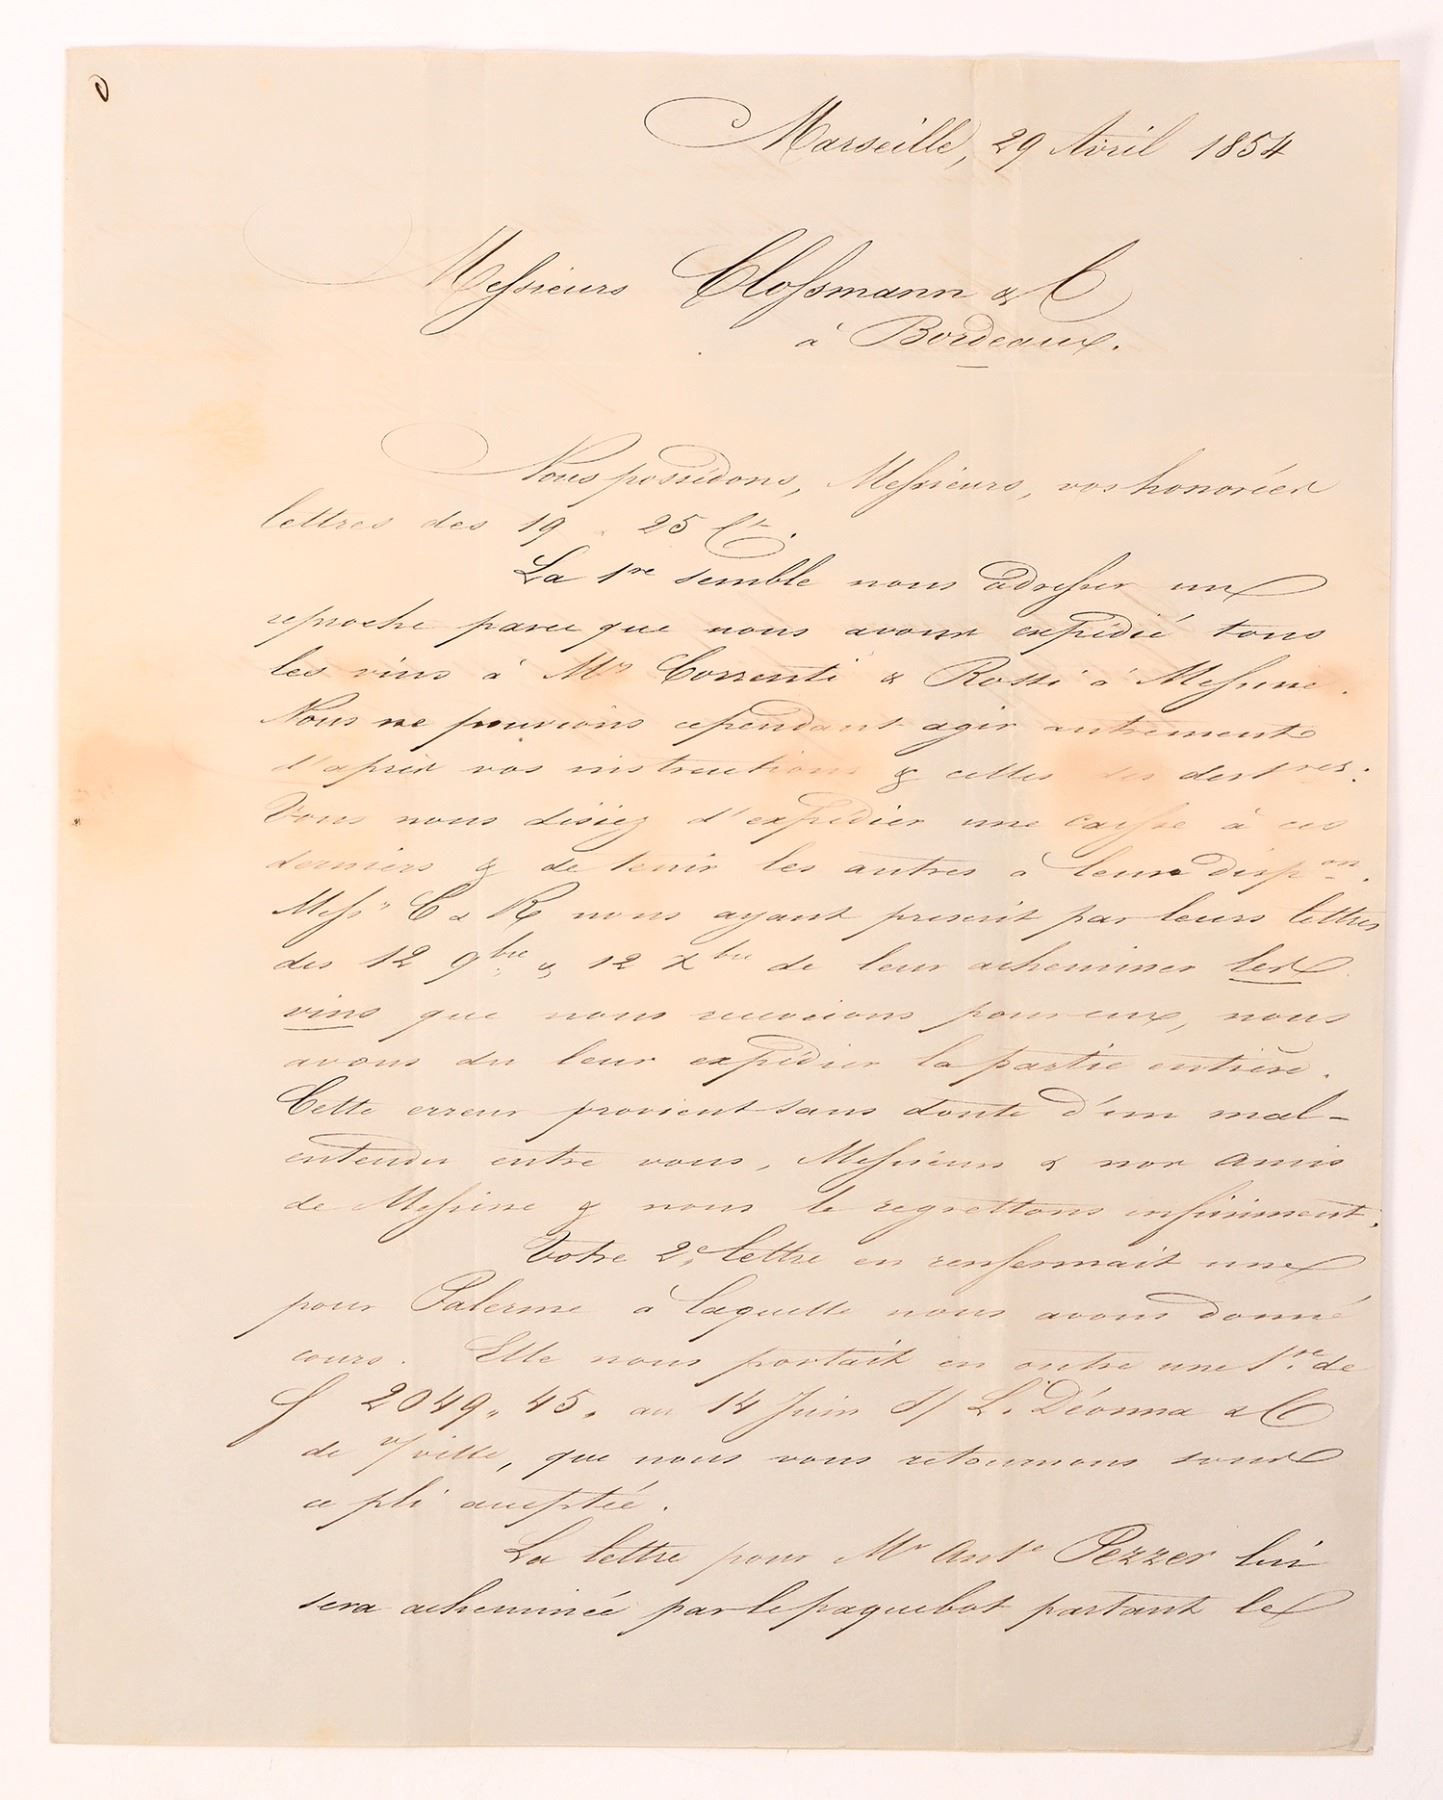 Marseille, 29 Avril 1854
Messieurs Clossmann & C
à Bordeaux.
Nous possédons, Messieurs, vos honorées
lettres des 19 25 Ct.
La 1re semble nous adresser un
reproche parce que nous avons expédié tous
les vins à Mrs Correnti & Rossi à Messine.
Nous ne pouvions cependant agir autrement
d'après vos instructions & celles des destres:
Vous nous disiez d'expédier une caisse à ces
derniers & de tenir les autres à leur dispon.
Messrs C & R nous ayant prescrit par leurs lettres
des 12 9bre & 12 Xbre de leur acheminer les
vins que nous recevions pour eux, nous
avons du leur expédier la partie entière.
Cette erreur provient sans doute d'un mal-
entendu entre vous, Messieurs & nos amis
de Messine & nous le regrettons infiniment.
Votre 2e lettre en renfermait une
pour Palerme à laquelle nous avons donné
cours. Elle nous portait en outre une 1re de
f 2049,, 45, au 14 Juin s/ L. Déonna & C
de n/ville, que nous vous retournons sous
ce pli acceptée.
La lettre pour Mr Ante Pezzer lui
sera acheminée par le paquebot partant le